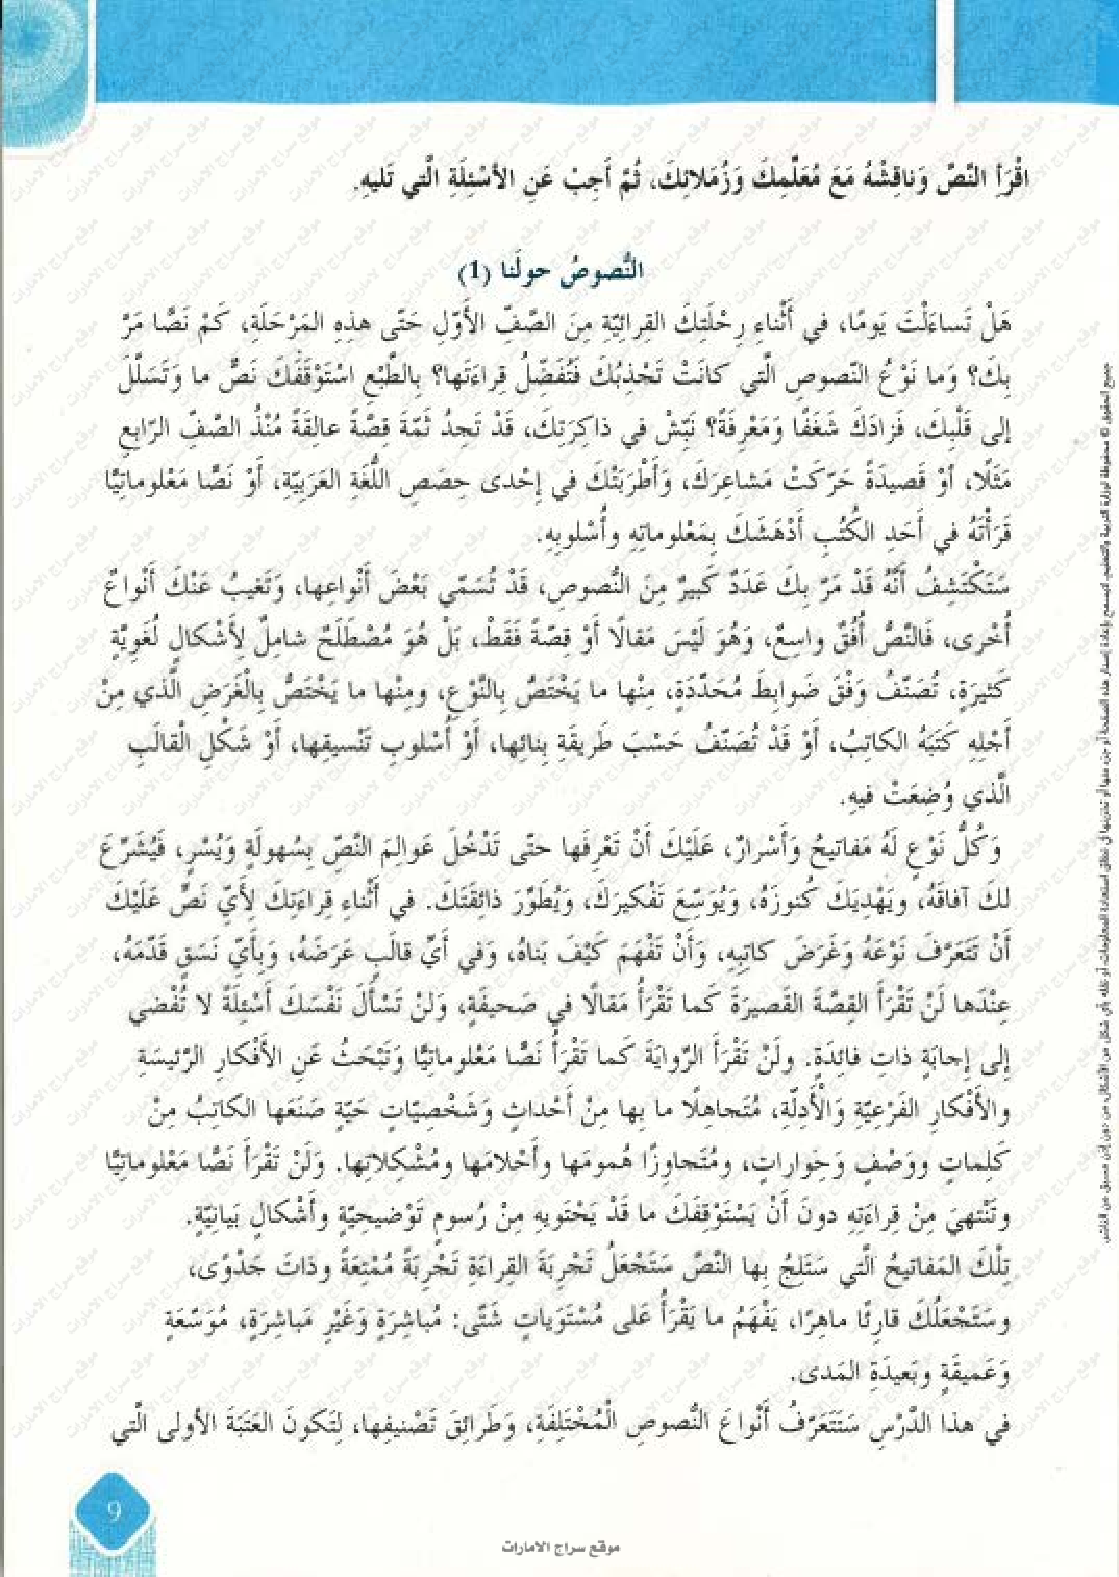 اقْرَأِ النَّصَّ وَناقِشْهُ مَعَ مُعَلِّمِكَ وَزُمَلائِكَ، ثُمَّ أَجِبْ عَنِ الأَسْئِلَةِ الَّتي تَليهِ.
النُّصوصُ حولَنا (1)
هَلْ تَساءَلْتَ يَومًا، في أَثْناءِ رِحْلَتِكَ القِرائِيّةِ مِنَ الصَّفِّ الأَوّلِ حَتّى هذِهِ المَرْحَلَةِ، كَمْ نَصًّا مَرَّ
بِكَ؟ وَما نَوْعُ النّصوصِ الَّتي كانَتْ تَجْذِبُكَ فَتُفَضِّلُ قِراءَتَها؟ بِالطَّبْعِ اسْتَوْقَفَكَ نَصٌّ ما وَتَسَلَّلَ
إلى قَلْبِكَ، فَزادَكَ شَغَفًا وَمَعْرِفَةً؟ نَبِّشْ في ذاكِرَتِكَ، قَدْ تَجِدُ ثَمّةَ قِصّةً عالِقَةً مُنْذُ الصَّفِّ الرّابِعِ
مَثَلًا، أوْ قَصيدَةً حَرّكَتْ مَشاعِرَكَ، وَأَطْرَبَتْكَ في إِحْدى حِصَصِ اللُّغَةِ العَرَبِيّةِ، أَوْ نَصًّا مَعْلوماتِيًّا
قَرَأْتَهُ في أَحَدِ الكُتُبِ أَدْهَشَكَ بِمَعْلوماتِهِ وأُسْلوبِهِ.
سَتَكْتَشِفُ أَنَّهُ قَدْ مَرّ بِكَ عَدَدٌ كَبيرٌ مِنَ النُّصوصِ، قَدْ تُسَمّي بَعْضَ أَنْواعِها، وَتَغيبُ عَنْكَ أَنْواعٌ
أُخْرى، فَالنَّصُّ أُفُقٌ واسِعٌ، وَهُوَ لَيْسَ مَقالًا أوْ قِصّةً فَقَطْ، بَلْ هُوَ مُصْطَلَحٌ شامِلٌ لِأَشْكالٍ لُغَوِيّةٍ
كَثيرَةٍ، تُصَنّفُ وَفْقَ ضَوابِطَ مُحَدّدَةٍ، مِنْها ما يَخْتَصُّ بِالنَّوْعِ، ومِنْها ما يَخْتَصُّ بِالْغَرَضِ الَّذي مِنْ
أَجْلِهِ كَتَبَهُ الكاتِبُ، أَوْ قَدْ تُصَنّفُ حَسْبَ طَريقَةِ بِنائِها، أَوْ أُسْلوبِ تَنْسيقِها، أَوْ شَكْلِ الْقالَبِ
الَّذي وُضِعَتْ فيهِ.
وَكُلُّ نَوْعٍ لَهُ مَفاتيحُ وَأَسْرارٌ، عَلَيْكَ أَنْ تَعْرِفَها حتّى تَدْخُلَ عَوالِمَ النَّصِّ بِسُهولَةٍ وَيُسْرٍ، فَيُشَرِّعَ
لكَ آفاقَهُ، ويَهْدِيَكَ كُنوزَهُ، ويُوَسِّعَ تَفْكيرَكَ، ويُطَوِّرَ ذائِقَتَكَ. في أَثْناءِ قِراءَتِكَ لِأَيِّ نَصٍّ عَلَيْكَ
أَنْ تَتَعَرَّفَ نَوْعَهُ وَغَرَضَ كاتِبِهِ، وَأَنْ تَفْهَمَ كَيْفَ بَناهُ، وَفي أَيِّ قالَبٍ عَرَضَهُ، وَبِأَيِّ نَسَقٍ قَدّمَهُ،
عِنْدَها لَنْ تَقْرَأَ القِصَّةَ القَصيرَةَ كَما تَقْرَأُ مَقالًا في صَحيفَةٍ، وَلَنْ تَسْأَلَ نَفْسَكَ أَسْئِلَةً لا تُفْضي
إلى إِجابَةٍ ذاتِ فائِدَةٍ. ولَنْ تَقْرَأَ الرِّوايَةَ كَما تَقْرَأُ نَصًّا مَعْلوماتِيًّا وَتَبْحَثُ عَنِ الأَفْكارِ الرّئيسَةِ
والأَفْكارِ الفَرْعِيّةِ وَالأَدِلّةِ، مُتَجاهِلًا ما بِها مِنْ أَحْداثٍ وَشَخْصِيّاتٍ حَيّةٍ صَنَعَها الكاتِبُ مِنْ
كَلِماتٍ ووَصْفٍ وَحِواراتٍ، ومُتَجاوِزًا هُمومَها وأَحْلامَها ومُشْكِلاتِها. وَلَنْ تَقْرَأَ نَصًّا مَعْلوماتِيًّا
وتَنْتَهِيَ مِنْ قِراءَتِهِ دونَ أَنْ يَسْتَوْقِفَكَ ما قَدْ يَحْتَويهِ مِنْ رُسومٍ تَوْضيحِيّةٍ وأَشْكالٍ بَيانِيّةٍ.
تِلْكَ المَفاتيحُ الَّتي سَتَلِجُ بِها النَّصَّ سَتَجْعَلُ تَجْرِبَةَ القِراءَةِ تَجْرِبَةً مُمْتِعَةً وذاتَ جَدْوًى،
وسَتَجْعَلُكَ قارِئًا ماهِرًا، يَفْهَمُ ما يَقْرَأُ عَلى مُسْتَوَياتٍ شَتّى: مُباشِرَةٍ وَغَيْرِ مُباشِرَةٍ، مُوَسّعَةٍ
وَعَميقَةٍ وبَعيدَةِ المَدى.
في هذا الدَّرْسِ سَتَتَعَرّفُ أَنْواعَ النُّصوصِ الْمُخْتَلِفَةِ، وَطَرائِقَ تَصْنيفِها، لِتَكونَ العَتَبَةَ الأولى الَّتي
9
موقع سراج الامارات